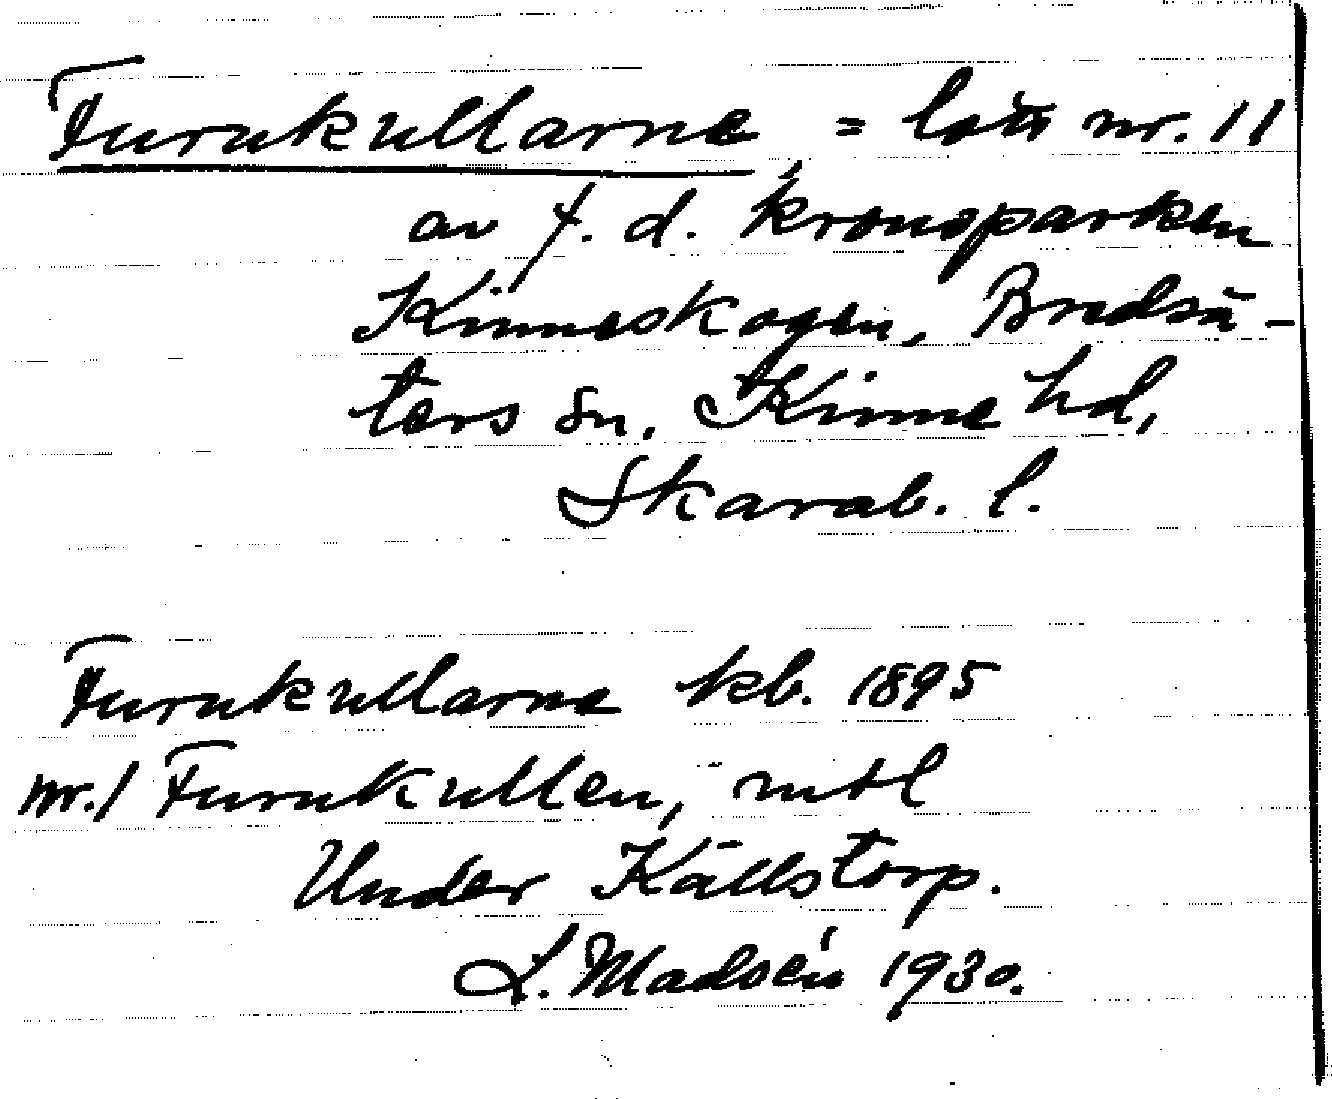 Furukullarne = lott nr. 11
av f. d. kronoparken
Kinneskogen, Bredsä-
ters sn. Kinne hd,
Skarab. l.
Furukullarne kb. 1895
nr. 1 Furukullen, mtl
Under Källstorp.
L. Madsén 1930.